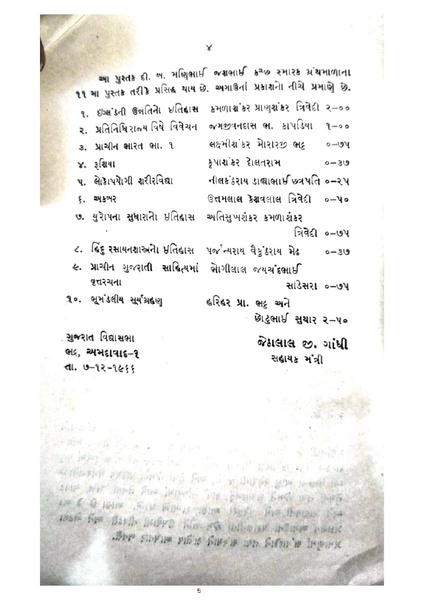 ૪
આ પુસ્તક દી. બ. મણિભાઈ જશભાઈ કચ્છ સ્મારક ગ્રંથમાળાના
૧૧ મા પુસ્તક તરીકે પ્રસિદ્ધ થાય છે. અગાઉનાં પ્રકાશનો નીચે પ્રમાણે છે.
૧. ઈંગ્લંડની ઉન્નતિનો ઇતિહાસ કમળાશંકર પ્રાણશંકર ત્રિવેદી ૨-૦૦
૨. પ્રતિનિધિરાજ્ય વિષે વિવેચન જગજીવનદાસ ભ. કાપડિયા ૧-૦૦
૩. પ્રાચીન ભારત ભા. ૧ લક્ષ્મીશંકર મોરારજી ભટ્ટ ૦-૭૫
૪. રૂશિયા કૃપાશંકર દોલતરામ ૦-૩૭
૫. લોકોપયોગી શરીરવિદ્યા નીલકંઠરાય ડાહ્યાભાઈ છત્રપતિ ૦-૨૫
૬. અકબર ઉત્તમલાલ કેશવલાલ ત્રિવેદી ૦-૫૦
૭. યુરોપના સુધારાનો ઇતિહાસ અતિસુખશંકર કમળાશંકર
ત્રિવેદી ૦-૭૫
૮. હિંદુ રસાયનશાસ્ત્રનો ઇતિહાસ પર્જન્યરાય વૈકુંઠરાય મેઢ ૦-૩૭
૯. પ્રાચીન ગુજરાતી સાહિત્યમાં ભોગીલાલ જયચંદભાઈ
વૃત્તરચના સાંડેસરા ૦-૭૫
૧૦. ભૂમંડલીય સૂર્યગ્રહણ હરિહર પ્રા. ભટ્ટ અને
છોટુભાઈ સુથાર ૨-૫૦
ગુજરાત વિદ્યાસભા
ભદ્ર, અમદાવાદ-૧
તા. ૭-૧૨-૧૯૬૬
જેઠાલાલ જી. ગાંધી
સહાયક મંત્રી
5